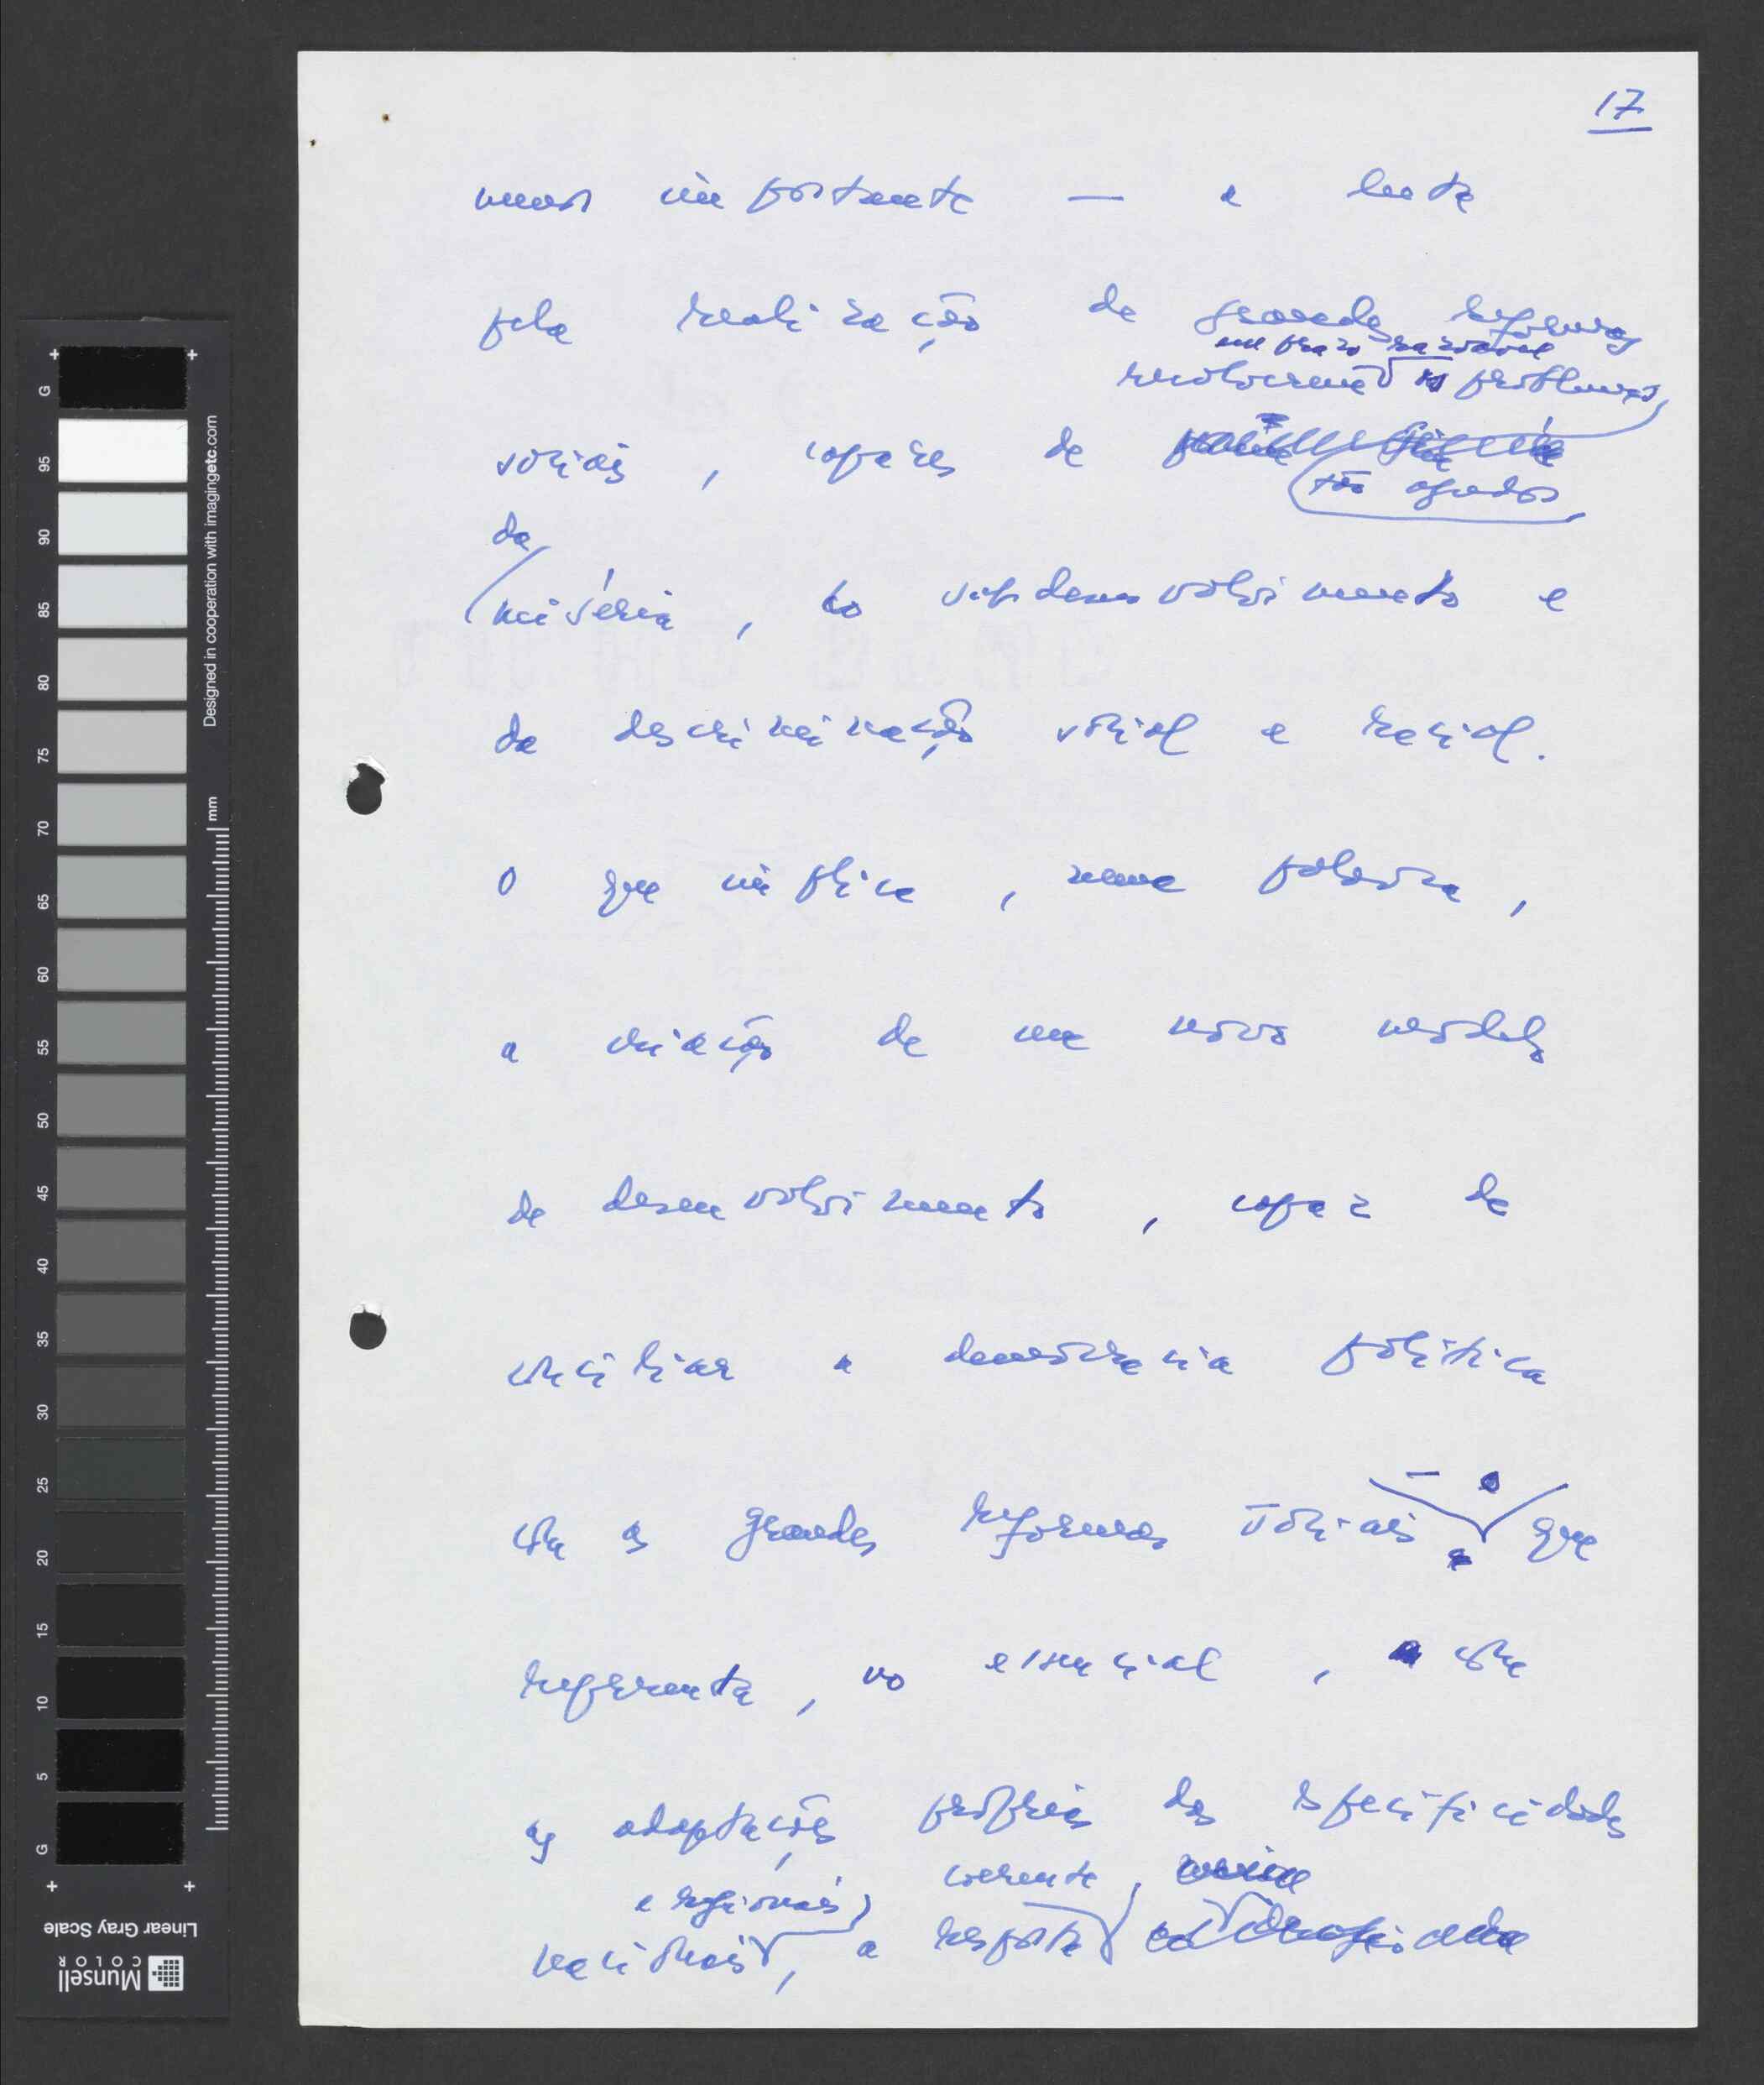 17
menos importante — a luta
pela realização de grandes reformas
em prazo razoável
resolverem os problemas
sociais, capazes de
tão agudos
da
miséria, do subdesenvolvimento e
da descriminação social e racial.
O que implica, numa palavra,
a criação de um novo modelo
de desenvolvimento, capaz de
conciliar a democracia política
com as grandes reformas sociais — que
representa, no essencial, com
as adaptações próprias das especificidades
e regionais, coerente,
nacionais, a resposta
Linear Gray Scale
Munsell
COLOR
Designed in cooperation with imagingetc.com
mm
G 95 90 85 80 75 70 65 60 55 50 45 40 35 30 25 20 15 10 5 G